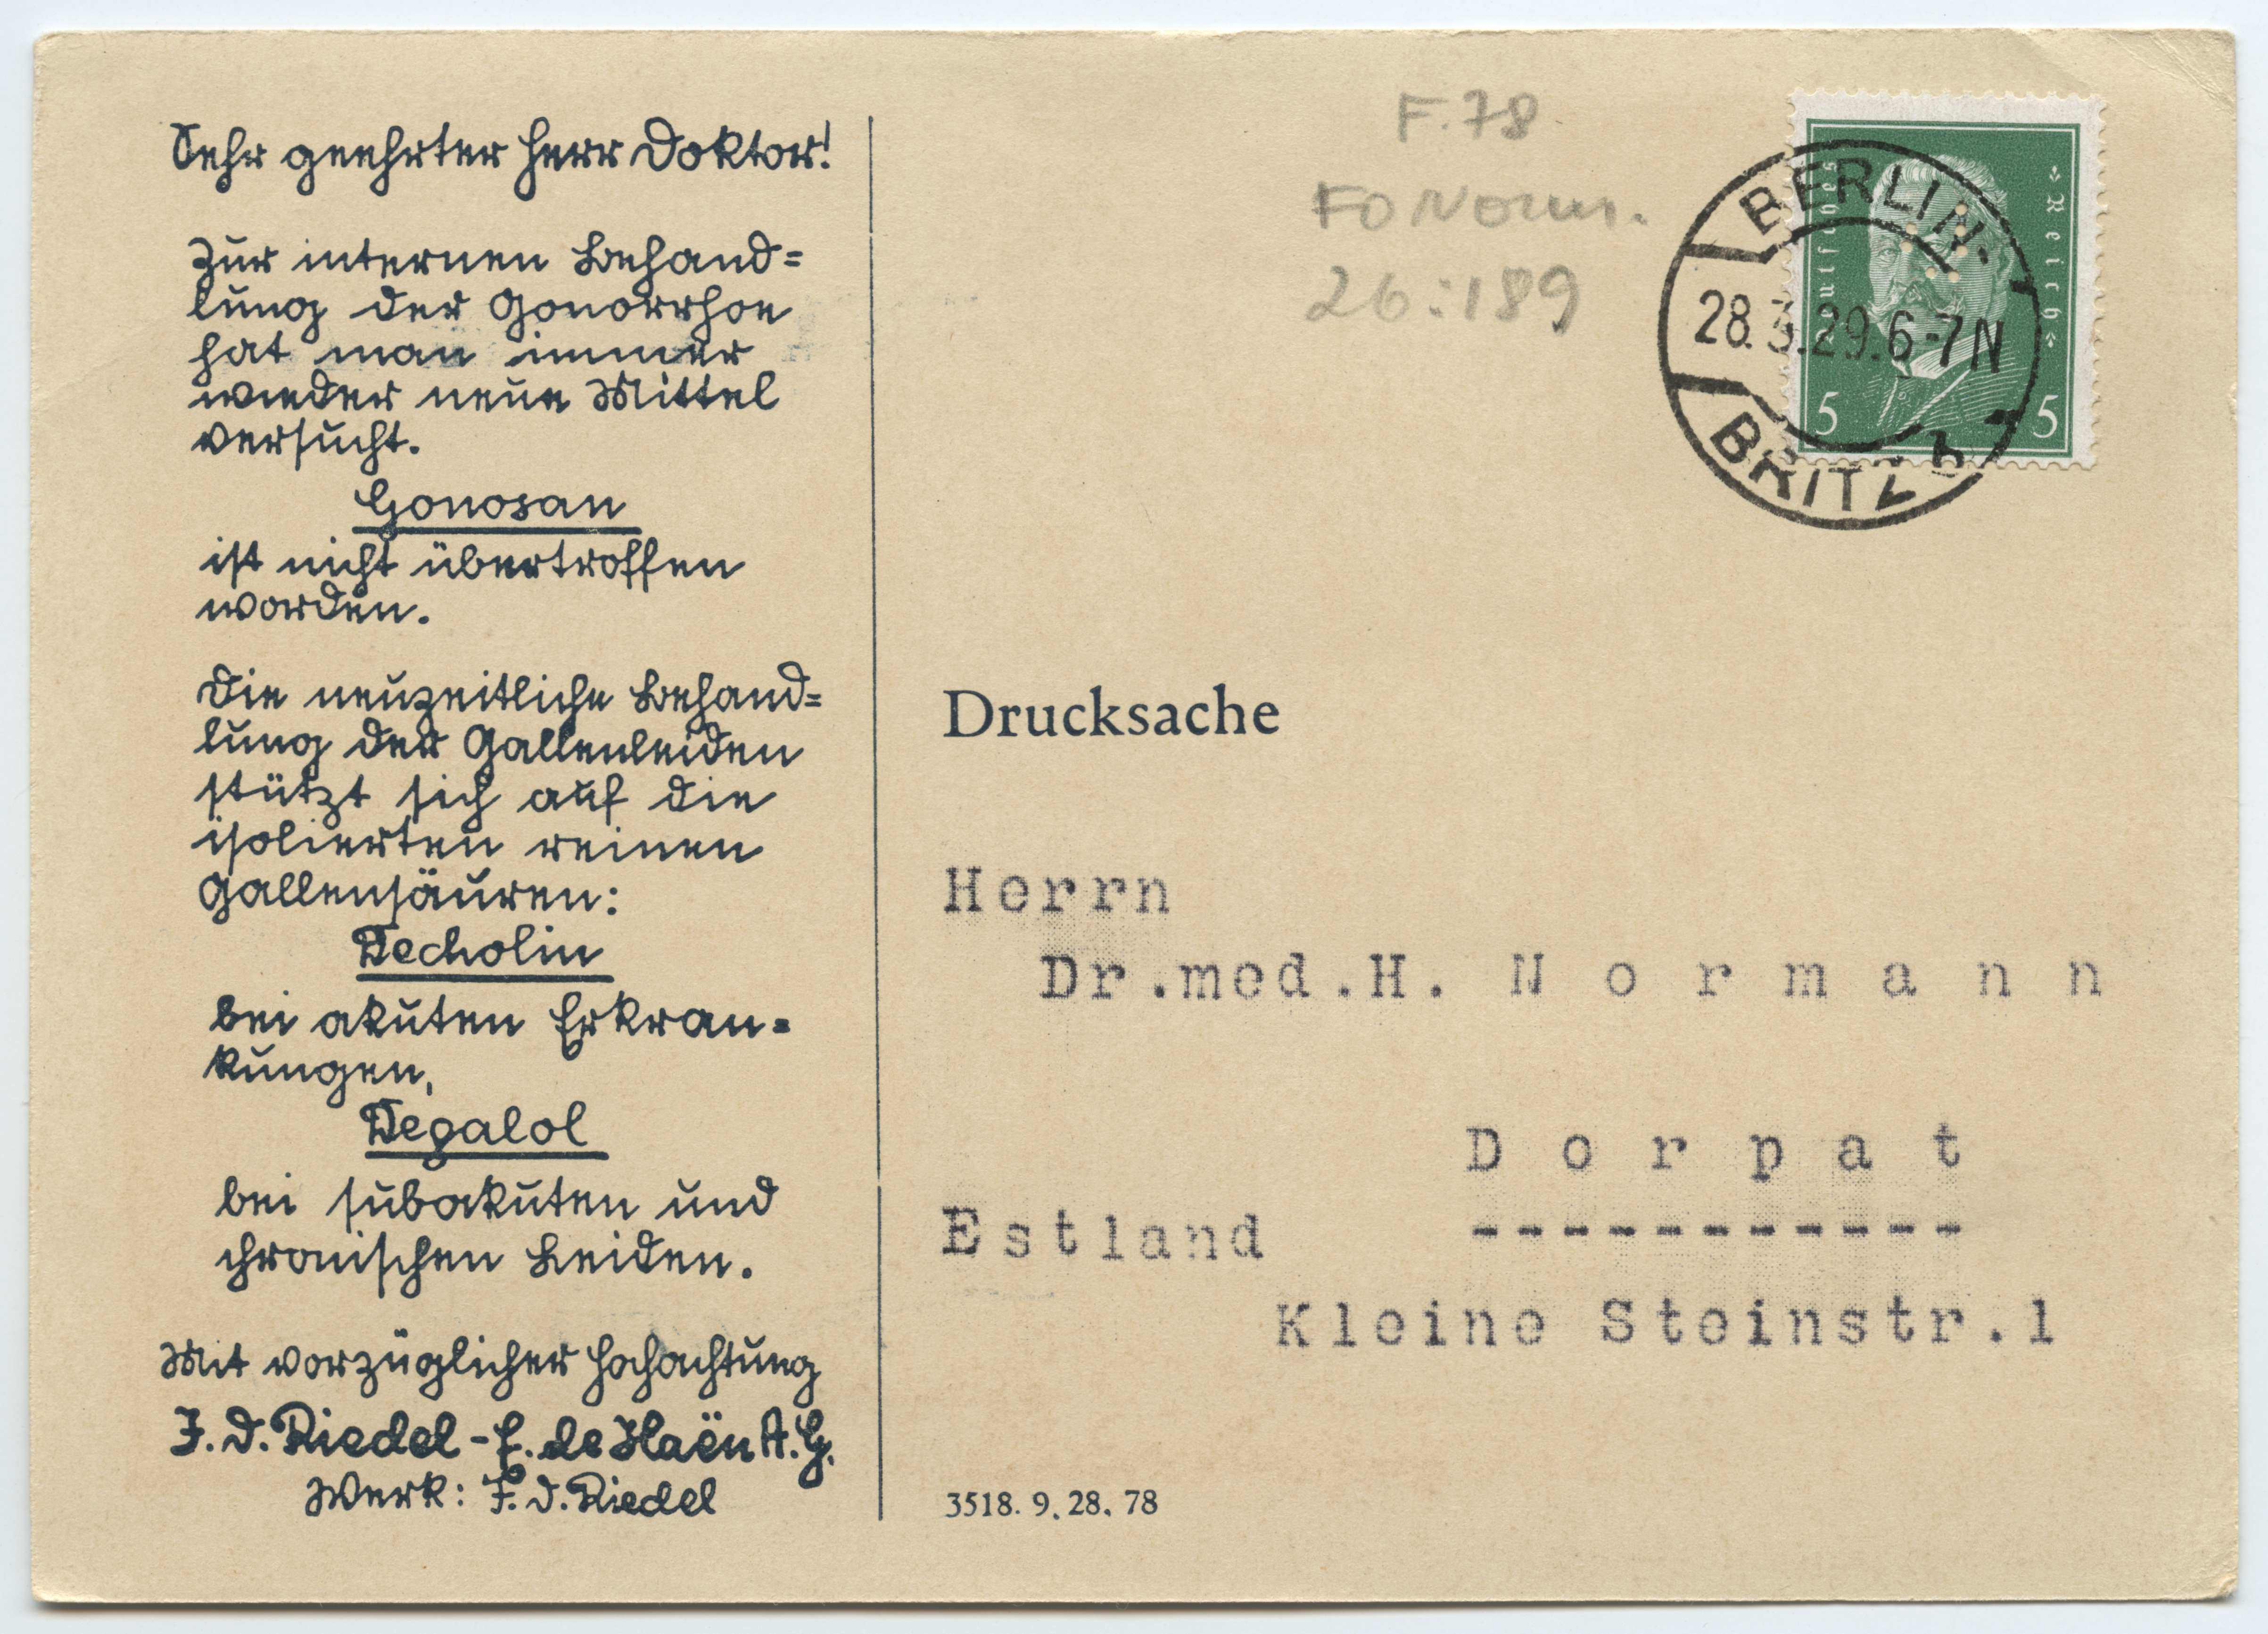 Sehr geehrter Herr Doktor!
Zur internen Behand=
lung der Gonorrhoe
hat man immer
wieder neue Mittel
versucht.
Gonosan
ist nicht übertroffen
worden.
Die neuzeitliche Behand=
lung der Gallenleiden
stützt sich auf die
isolierten reinen
Gallensäuren:
Decholin
bei akuten Erkran=
kungen,
Degalol
bei subakuten und
chronischen Leiden.
Mit vorzüglicher Hochachtung
J. D. Riedel - E. de Haën A. G.
Werk: J. D. Riedel
F. 78
FO Norm.
26:189
Deutsches Reich
5 5
BERLIN-
28.3.29.6-7N
BRITZ
b
Drucksache
Herrn
Dr.med.H. Normann
Dorpat
Estland -----------
Kleine Steinstr.1
3518. 9. 28. 78